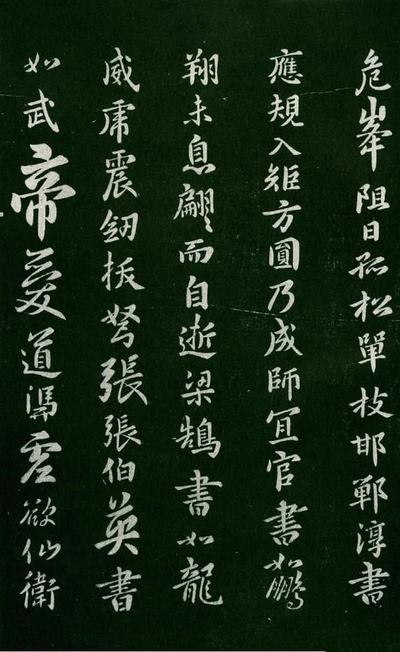 危峯阻日孤松單枝邯鄲淳書
應規入矩方圓乃成師冝官書如鵬
翔未息翩〻而自逝梁鵠書如龍
威虎震劒拔弩張張伯英書
如武帝愛道馮虛欲仙衛